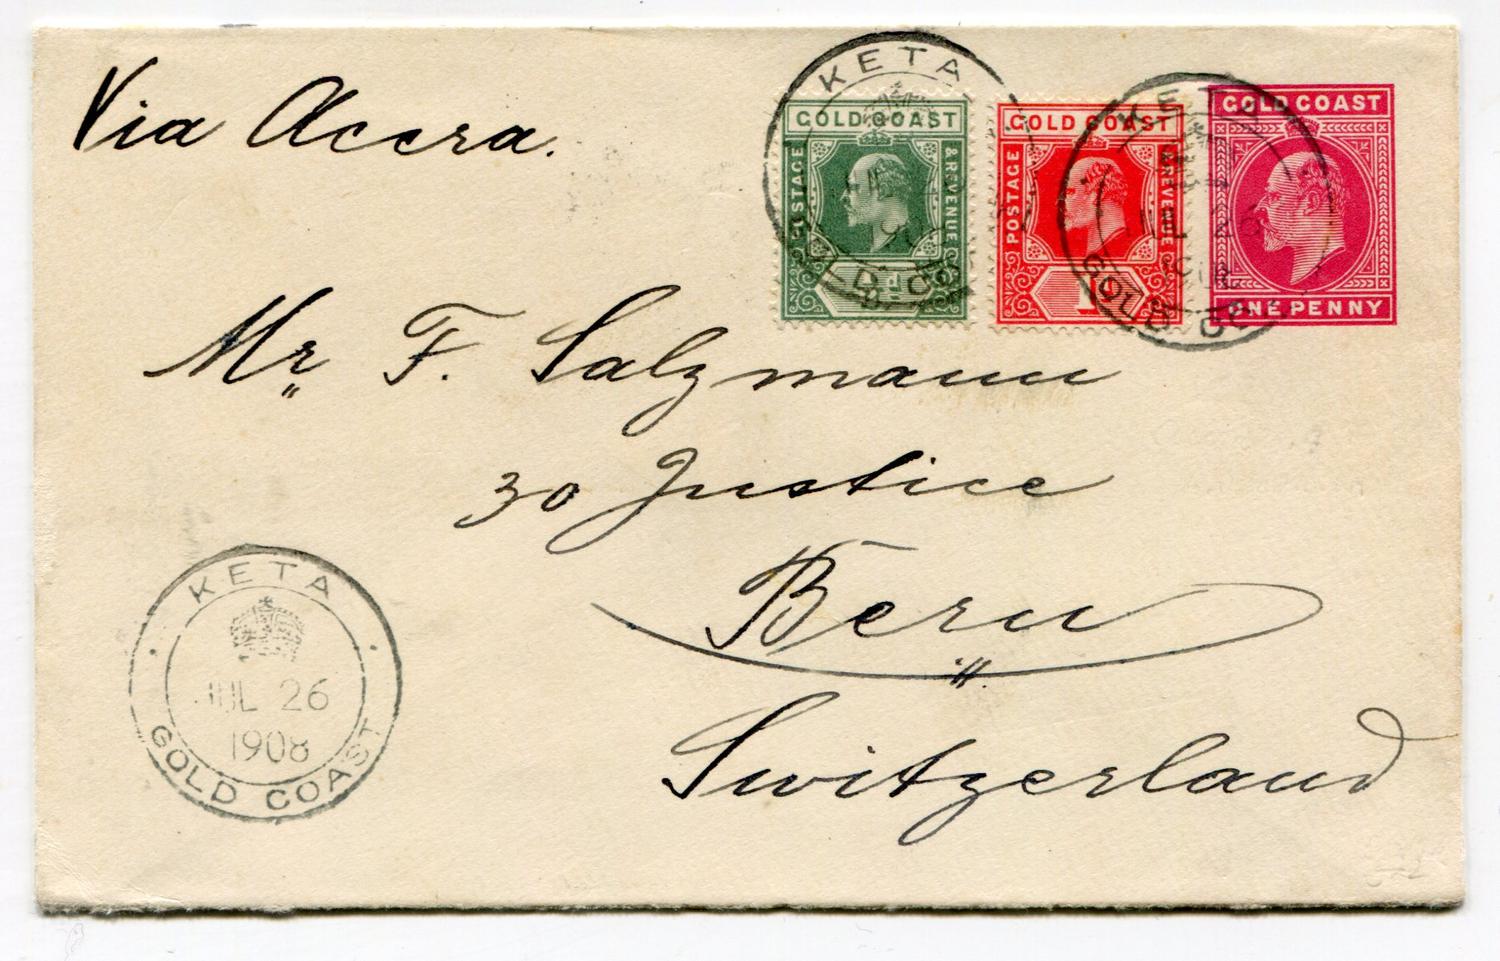 Via Accra.
KETA
GOLD CO
GOLD COAST
POSTAGE
& REVENUE
GOLD COAST
POSTAGE
& REVENUE
1
KETA
JUL 26
GOLD CO
GOLD COAST
ONE PENNY
Mr F. Salzmann
30 Justice
Bern
Switzerland
KETA
JUL 26
1908
GOLD COAST